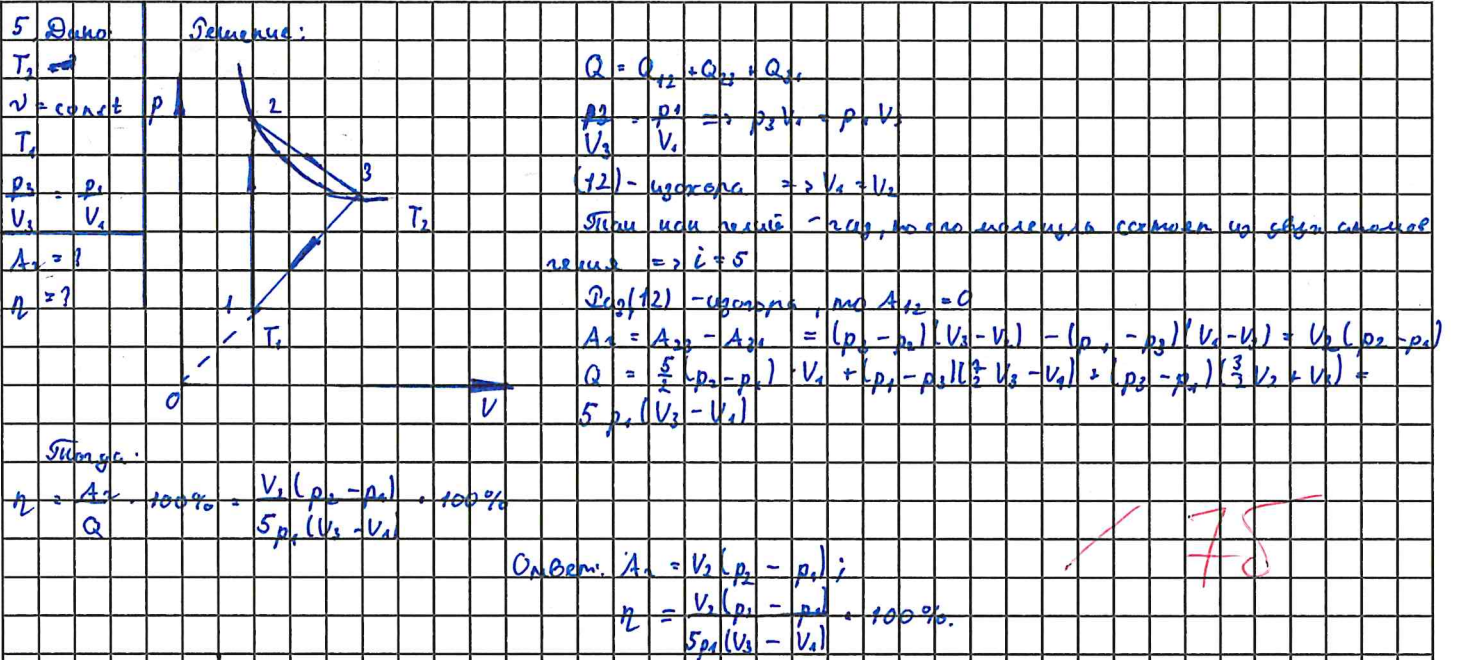 5 Дано: Решение:
T₂
ν = const
T₁
p₃/V₃ = p₁/V₁
A₂ = ?
η = ?
p
2
3
T₂
1
T₁
0
V
Q = Q₁₂ + Q₂₃ + Q₃₁
p₃/V₃ = p₁/V₁ => p₃V₁ = p₁V₃
(12) - изохора => V₁ = V₂
Так как гелий - газ, то его молекула состоит из двух атомов
гелия => i = 5
Раз (12) - изохора, то A₁₂ = 0
A₂ = A₂₃ - A₃₁ = (p₃ - p₂)(V₃ - V₂) - (p₁ - p₃)(V₁ - V₃) = V₂(p₂ - p₁)
Q = 5/2 (p₂ - p₁) · V₁ + (p₁ - p₃)(7/2 V₃ - V₁) + (p₃ - p₁)(3/2 V₂ + V₃) =
5 p₁(V₃ - V₁)
Тогда:
η = A₂/Q · 100% = V₂(p₂ - p₁)/5p₁(V₃ - V₁) · 100%
Ответ: A₂ = V₂(p₂ - p₁);
η = V₂(p₂ - p₁)/5p₁(V₃ - V₁) · 100%.